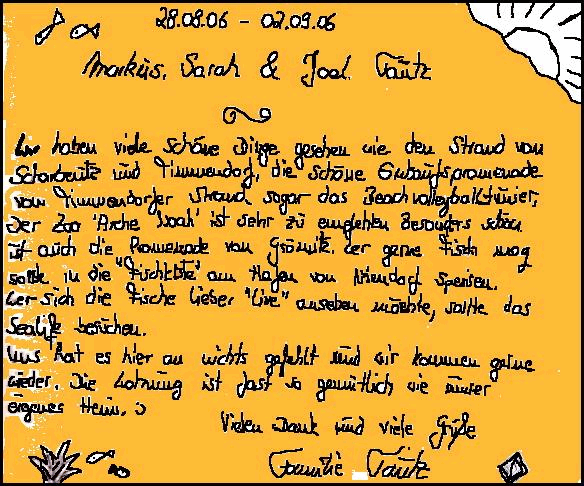 28.08.06 - 02.09.06
Markus, Sarah & Joel Tautz
Wir haben viele schöne Dinge gesehen wie den Strand von
Scharbeutz und Timmendorf, die schöne Einkaufspromenade
vom Timmendorfer Strand sogar das Beachvolleyballtunier,
Der Zoo "Arche Noah" ist sehr zu empfehlen Besonders schön
ist auch die Promenade von Grömitz. Wer gerne Fisch mag
sollte in die "Fischkiste" am Hafen von Niendorf speisen.
Wer sich die Fische lieber "Live" ansehen möchte, sollte das
Sealife besuchen.
Uns hat es hier an nichts gefehlt und wir kommen gerne
wieder. Die Wohnung ist fast so gemütlich wie unser
eigenes Heim. :)
Vielen Dank und viele Grüße
Familie Tautz